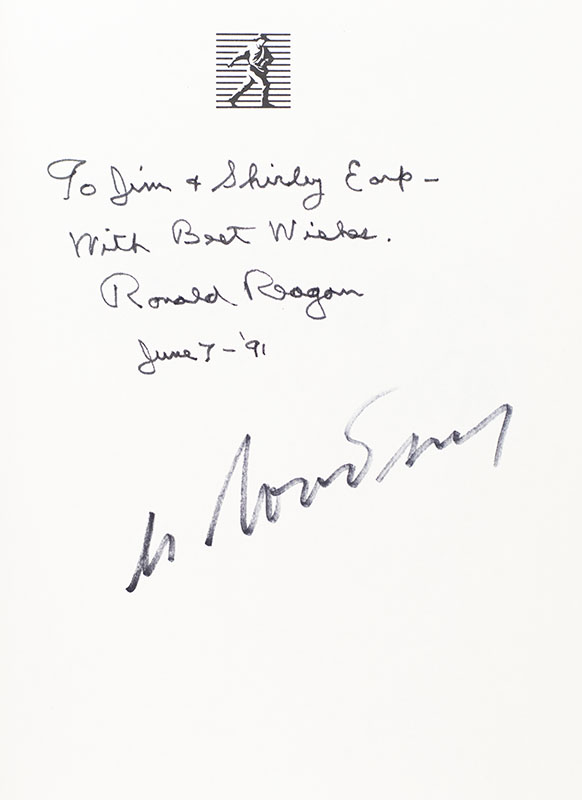 To Jim & Shirley Earp –
With Best Wishes.
Ronald Reagan
June 7 – '91